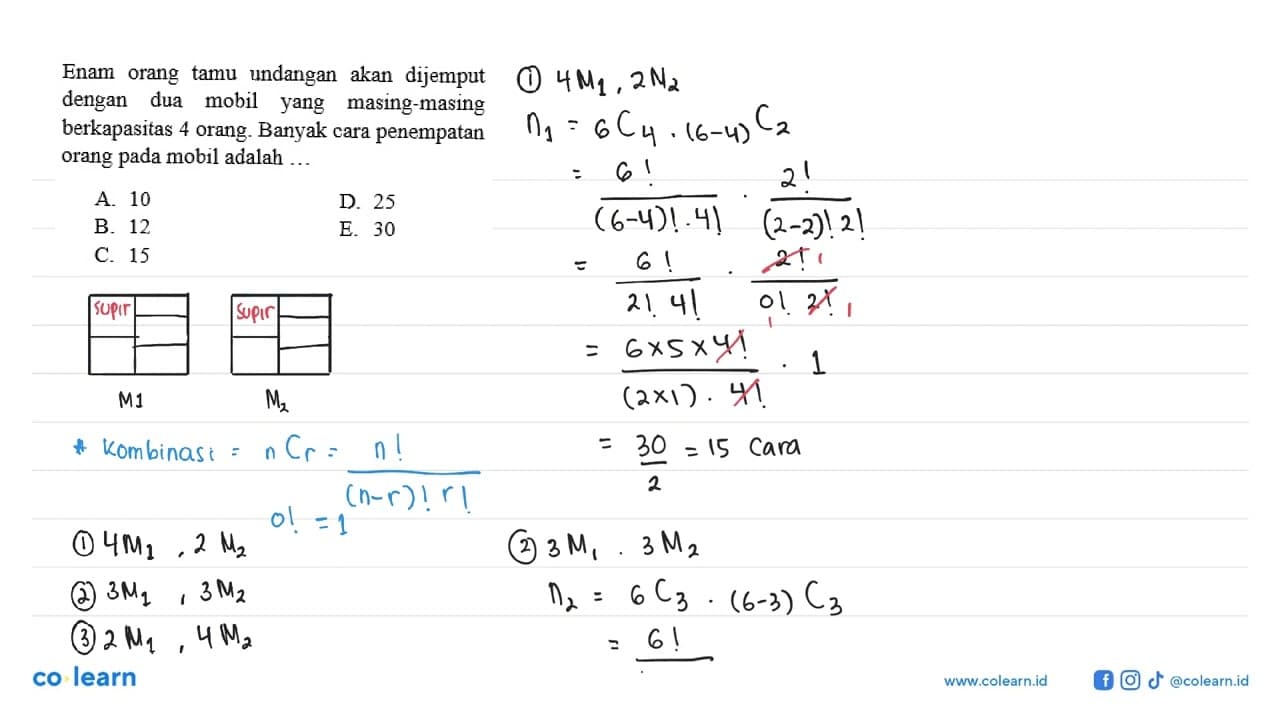 Enam orang tamu undangan akan dijemput
dengan dua mobil yang masing-masing
berkapasitas 4 orang. Banyak cara penempatan
orang pada mobil adalah ...
A. 10
B. 12
C. 15
D. 25
E. 30
supir
supir
M1
M2
* Kombinasi = nCr = n! / (n-r)! r!
0! = 1
① 4M1 , 2 M2
② 3M1 , 3M2
③ 2 M1 , 4 M2
① 4M1 , 2N2
n1 = 6C4 . (6-4)C2
= 6! / (6-4)! . 4! . 2! / (2-2)! 2!
= 6! / 2! 4! . 2! 1 / 0! 2! 1 1
= 6 x 5 x 4! / (2x1) . 4! . 1
= 30 / 2 = 15 cara
② 3 M1 . 3 M2
n2 = 6C3 . (6-3)C3
= 6!
co learn
www.colearn.id
@colearn.id